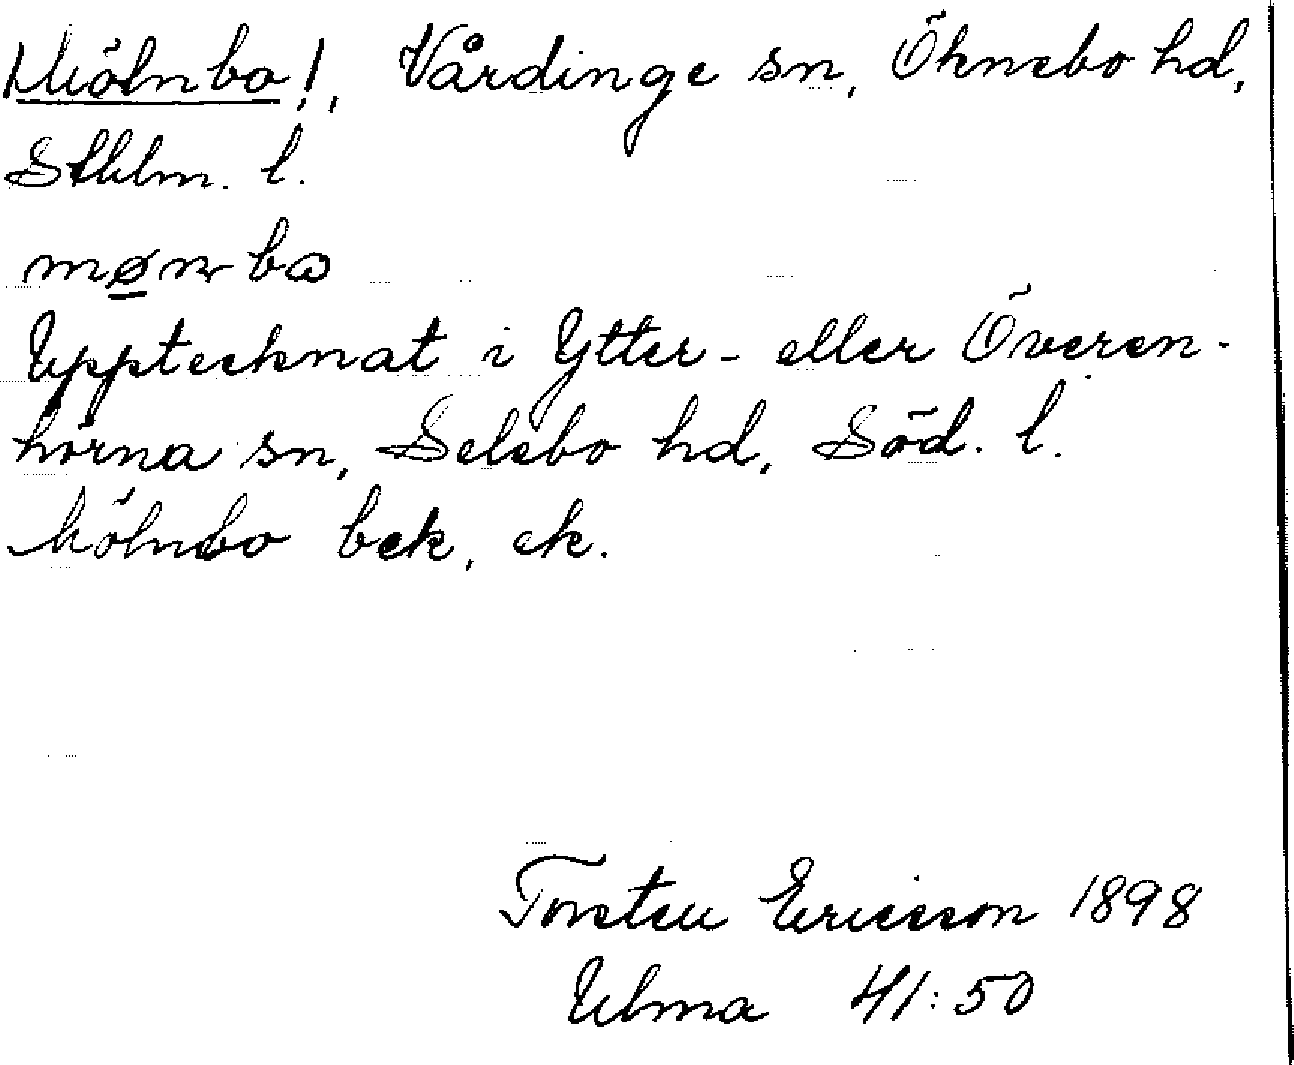 Mölnbo!, Vårdinge sn, Öknebo hd,
Sthlm. l.
Upptecknat i Ytter- eller Överen-
hörna sn, Selebo hd, Söd. l.
Mölnbo bek, ek.
Torsten Ericsson 1898
Ulma 41:50